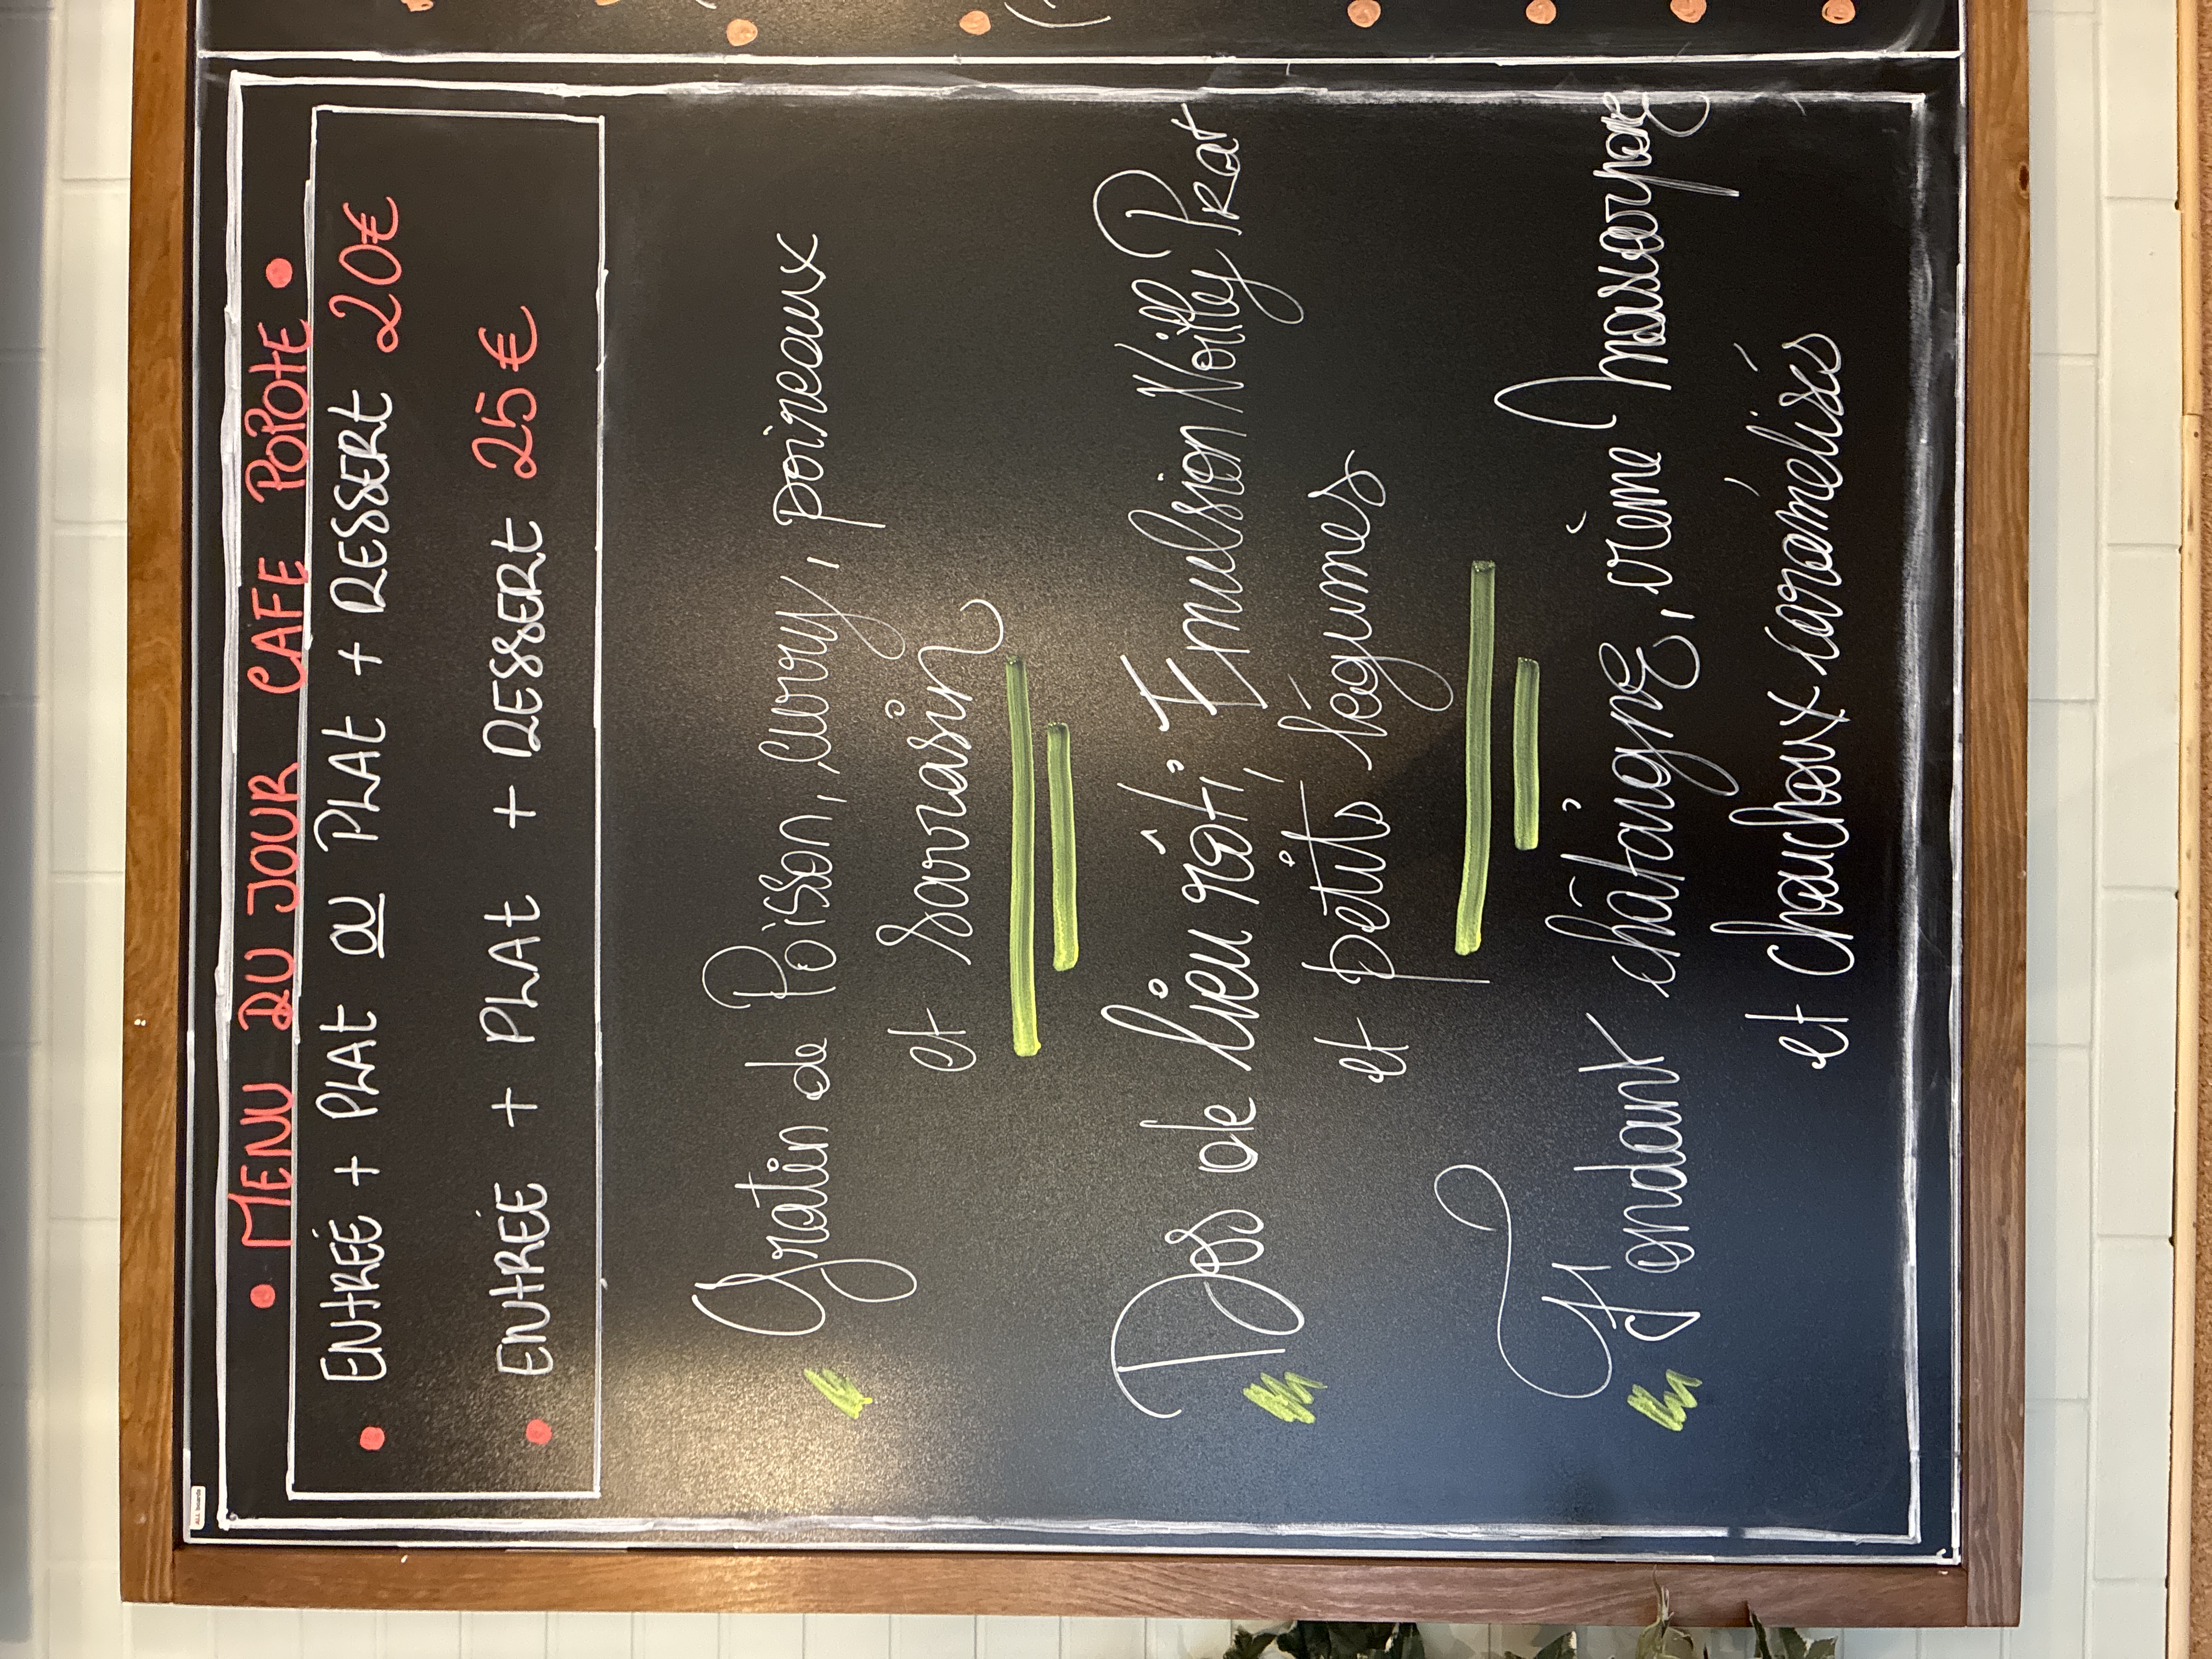 • MENU DU JOUR CAFE POPOTE •
• ENTRÉE + PLAT OU PLAT + DESSERT 20€
• ENTRÉE + PLAT + DESSERT 25€
Gratin de Poisson, curry, poireaux
et Sarrasin
Dos de lieu rôti, Emulsion Noilly Prat
et petits légumes
Fondant châtaigne, crème mascarpone
et chouchoux caramélisés